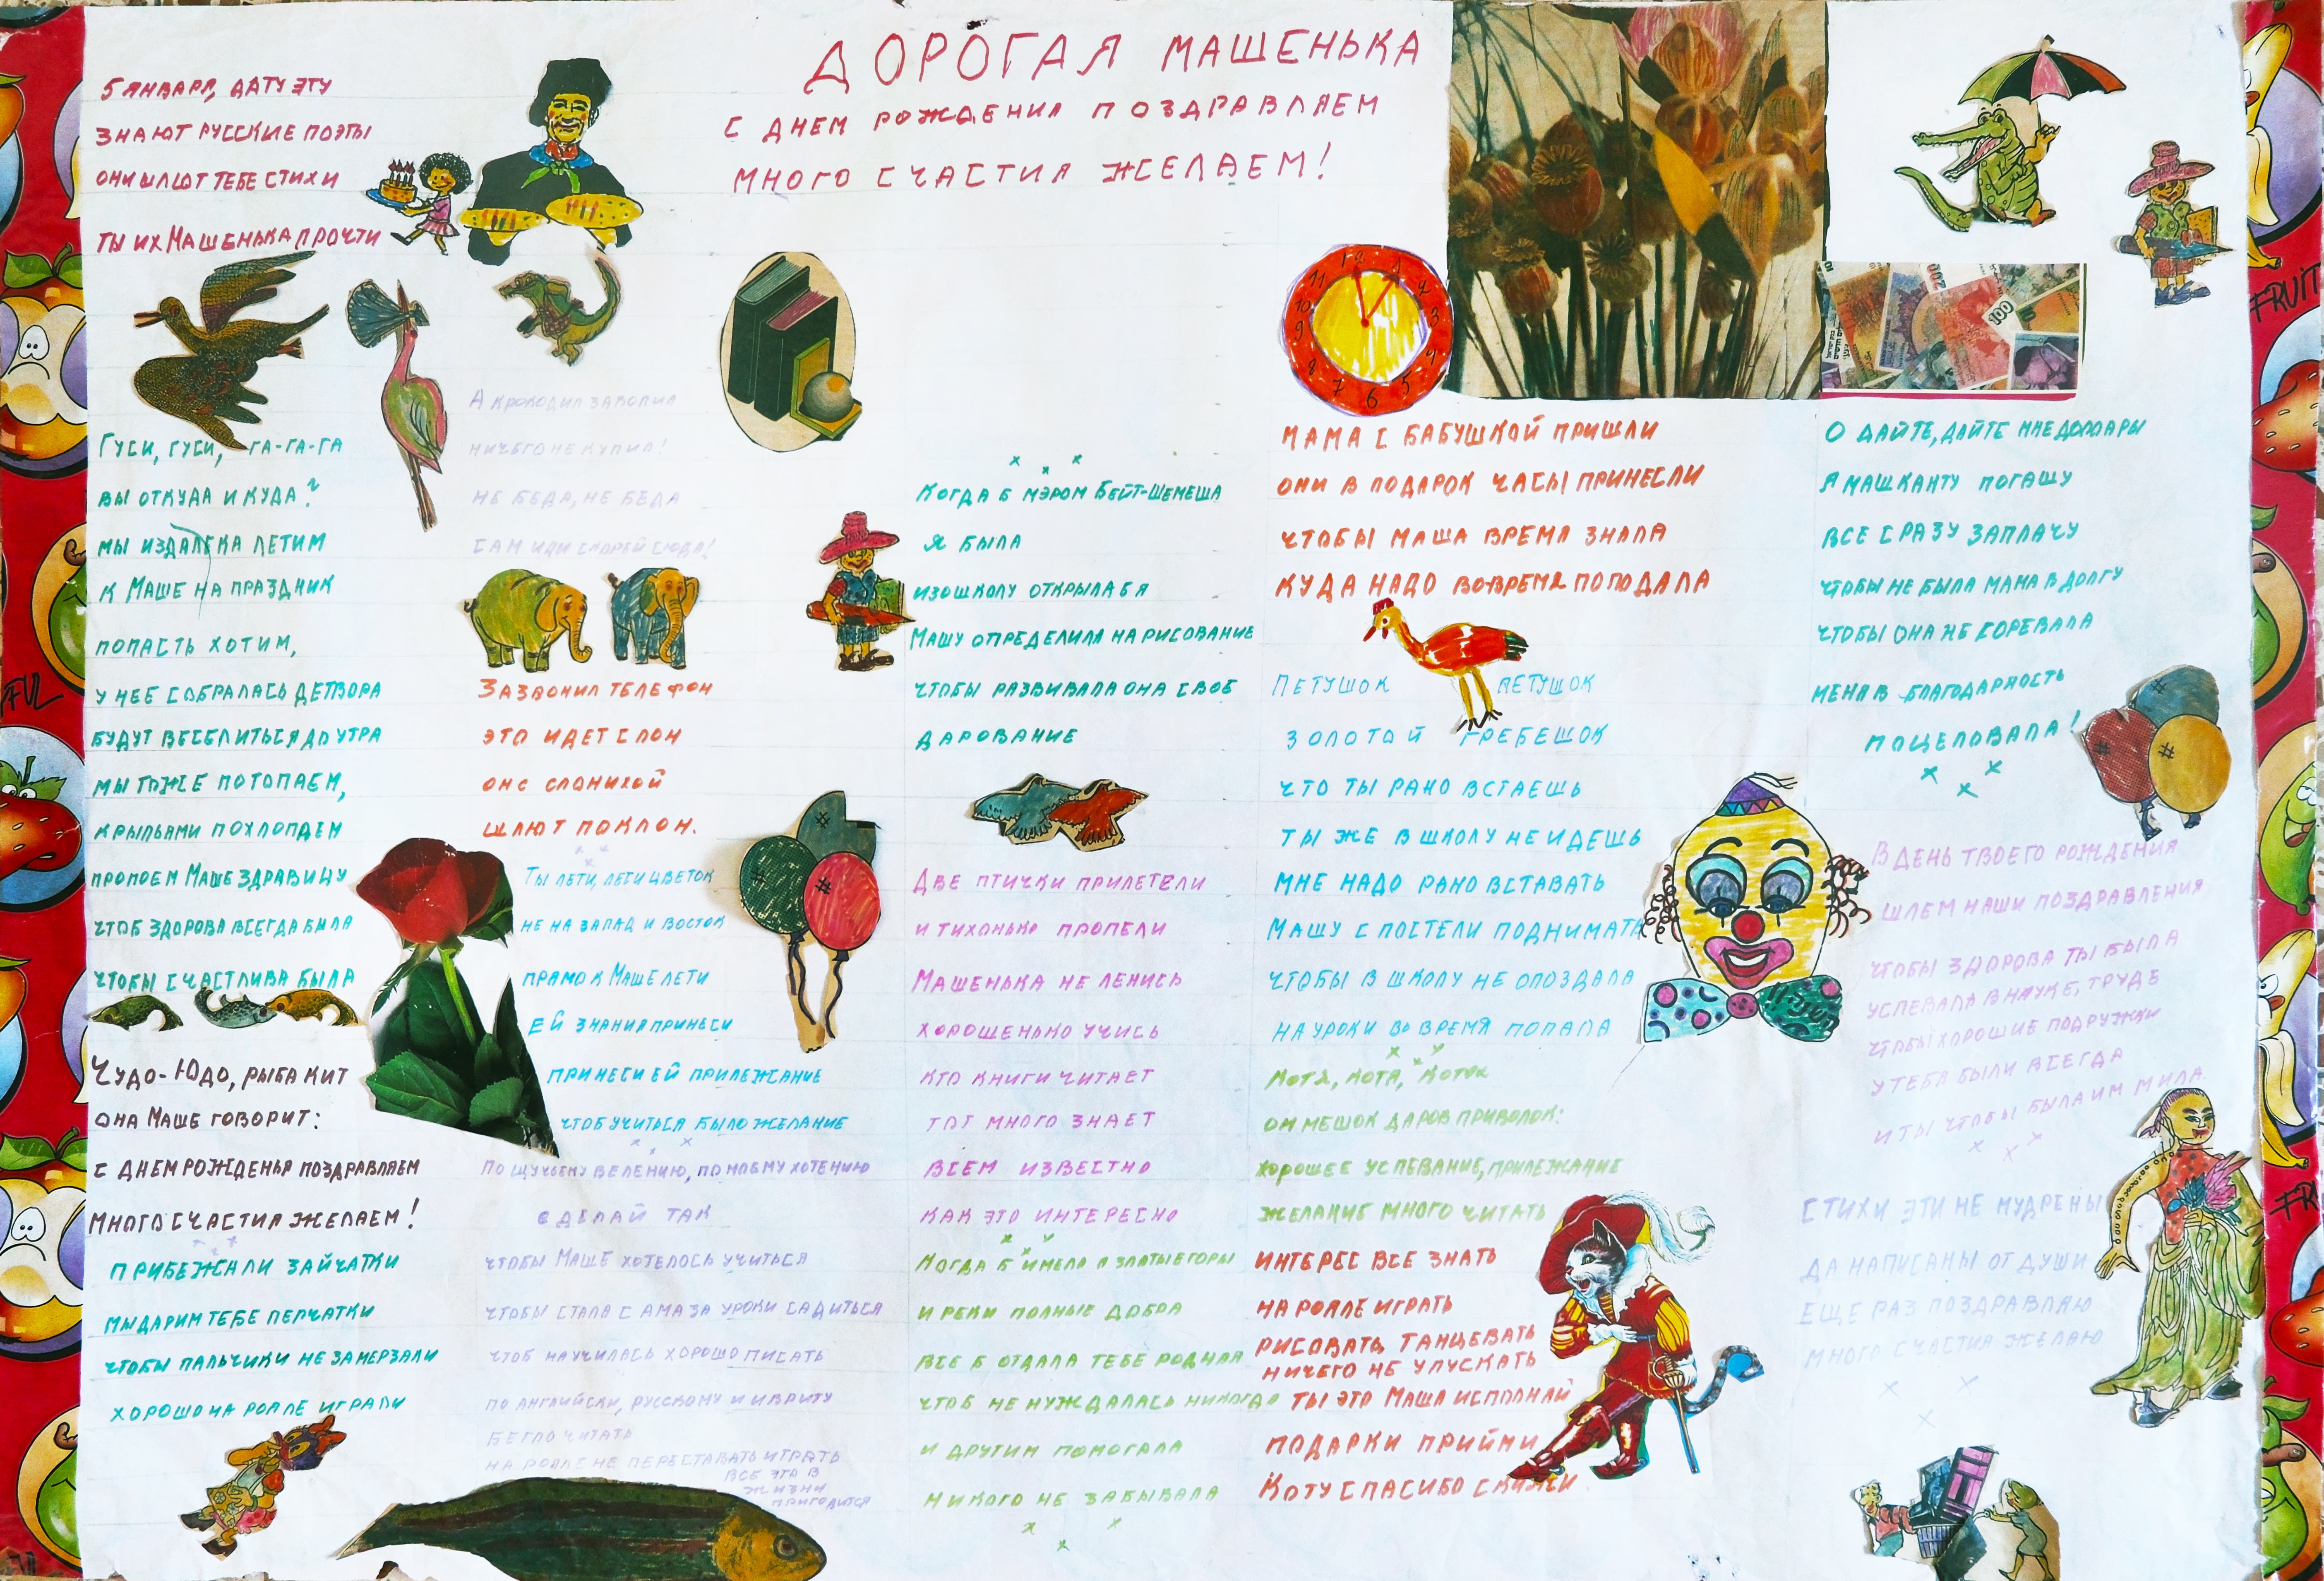 ДОРОГАЯ МАШЕНЬКА
С ДНЕМ РОЖДЕНИЯ ПОЗДРАВЛЯЕМ
МНОГО СЧАСТИЯ ЖЕЛАЕМ!
5 ЯНВАРЯ, ДАТУ ЭТУ
ЗНАЮТ РУССКИЕ ПОЭТЫ
ОНИ ШЛЮТ ТЕБЕ СТИХИ
ТЫ ИХ МАШЕНЬКА ПРОЧТИ
ГУСИ, ГУСИ, ГА-ГА-ГА
ВЫ ОТКУДА И КУДА?
МЫ ИЗДАЛЕКА ЛЕТИМ
К МАШЕ НА ПРАЗДНИК
ПОПАСТЬ ХОТИМ,
У НЕЕ СОБРАЛАСЬ ДЕТВОРА
БУДУТ ВЕСЕЛИТЬСЯ ДО УТРА
МЫ ТОЖЕ ПОТОПАЕМ,
КРЫЛЬЯМИ ПОХЛОПАЕМ
ПРОПОЕМ МАШЕ ЗДРАВИЦУ
ЧТОБ ЗДОРОВА ВСЕГДА БЫЛА
ЧТОБЫ СЧАСТЛИВА БЫЛА
ЧУДО-ЮДО, РЫБА КИТ
ОНА МАШЕ ГОВОРИТ:
С ДНЕМ РОЖДЕНЬЯ ПОЗДРАВЛЯЕМ
МНОГО СЧАСТИЯ ЖЕЛАЕМ!
ПРИБЕЖАЛИ ЗАЙЧАТКИ
МЫ ДАРИМ ТЕБЕ ПЕРЧАТКИ
ЧТОБЫ ПАЛЬЧИКИ НЕ ЗАМЕРЗАЛИ
ХОРОШО НА РОЯЛЕ ИГРАЛИ
А КРОКОДИЛ ЗАВОПИЛ
НИЧЕГО НЕ КУПИЛ!
НЕ БЕДА, НЕ БЕДА
САМ ИДИ СКОРЕЙ СЮДА!
ЗАЗВОНИЛ ТЕЛЕФОН
ЭТО ИДЕТ СЛОН
ОН С СЛОНИХОЙ
ШЛЮТ ПОКЛОН.
ТЫ ЛЕТИ, ЛЕТИ ЦВЕТОК
НЕ НА ЗАПАД И ВОСТОК
ПРЯМО К МАШЕ ЛЕТИ
ЕЙ ЗНАНИЯ ПРИНЕСИ
ПРИНЕСИ ЕЙ ПРИЛЕЖАНИЕ
ЧТОБ УЧИТЬСЯ БЫЛО ЖЕЛАНИЕ
ПО ЩУЧЬЕМУ ВЕЛЕНИЮ, ПО МОЕМУ ХОТЕНИЮ
СДЕЛАЙ ТАК
ЧТОБЫ МАШЕ ХОТЕЛОСЬ УЧИТЬСЯ
ЧТОБЫ СТАЛА САМА ЗА УРОКИ САДИТЬСЯ
ЧТОБ НАУЧИЛАСЬ ХОРОШО ПИСАТЬ
ПО АНГЛИЙСКИ, РУССКОМУ И ИВРИТУ
БЕГЛО ЧИТАТЬ
НА РОЯЛЕ НЕ ПЕРЕСТАВАТЬ ИГРАТЬ
ВСЕ ЭТО В
ЖИЗНИ
ПРИГОДИТСЯ
КОГДА Б МЭРОМ БЕЙТ-ШЕМЕША
Я БЫЛА
ИЗОШКОЛУ ОТКРЫЛА БЯ
МАШУ ОПРЕДЕЛИЛА НА РИСОВАНИЕ
ЧТОБЫ РАЗВИВАЛА ОНА СВОЕ
ДАРОВАНИЕ
ДВЕ ПТИЧКИ ПРИЛЕТЕЛИ
И ТИХОНЬКО ПРОПЕЛИ
МАШЕНЬКА НЕ ЛЕНИСЬ
ХОРОШЕНЬКО УЧИСЬ
КТО КНИГИ ЧИТАЕТ
ТОТ МНОГО ЗНАЕТ
ВСЕМ ИЗВЕСТНО
КАК ЭТО ИНТЕРЕСНО
КОГДА Б ИМЕЛА Я ЗЛАТЫЕ ГОРЫ
И РЕКИ ПОЛНЫЕ ДОБРА
ВСЕ Б ОТДАЛА ТЕБЕ РОДНАЯ
ЧТОБ НЕ НУЖДАЛАСЬ НИКОГДА
И ДРУГИМ ПОМОГАЛА
НИКОГО НЕ ЗАБЫВАЛА
12 1 2 3 4 5 6 7 8 9 10 11
МАМА С БАБУШКОЙ ПРИШЛИ
ОНИ В ПОДАРОК ЧАСЫ ПРИНЕСЛИ
ЧТОБЫ МАША ВРЕМЯ ЗНАЛА
КУДА НАДО ВОВРЕМЯ ПОПОДАЛА
ПЕТУШОК ПЕТУШОК
ЗОЛОТОЙ ГРЕБЕШОК
ЧТО ТЫ РАНО ВСТАЕШЬ
ТЫ ЖЕ В ШКОЛУ НЕ ИДЕШЬ
МНЕ НАДО РАНО ВСТАВАТЬ
МАШУ С ПОСТЕЛИ ПОДНИМАТЬ
ЧТОБЫ В ШКОЛУ НЕ ОПОЗДАЛА
НА УРОКИ ВО ВРЕМЯ ПОПАЛА
КОТЯ, КОТЯ, КОТОК
ОН МЕШОК ДАРОВ ПРИВОЛОК:
ХОРОШЕЕ УСПЕВАНИЕ, ПРИЛЕЖАНИЕ
ЖЕЛАНИЕ МНОГО ЧИТАТЬ
ИНТЕРЕС ВСЕ ЗНАТЬ
НА РОЯЛЕ ИГРАТЬ
РИСОВАТЬ, ТАНЦЕВАТЬ
НИЧЕГО НЕ УПУСКАТЬ
ТЫ ЭТО МАША ИСПОЛНЯЙ
ПОДАРКИ ПРИЙМИ
КОТУ СПАСИБО СКАЖИ
200
100
О ДАЙТЕ, ДАЙТЕ МНЕ ДОЛЛАРЫ
Я МАШКАНТУ ПОГАШУ
ВСЕ СРАЗУ ЗАПЛАЧУ
ЧТОБЫ НЕ БЫЛА МАМА В ДОЛГУ
ЧТОБЫ ОНА НЕ ГОРЕВАЛА
МЕНЯ В БЛАГОДАРНОСТЬ
ПОЦЕЛОВАЛА!
В ДЕНЬ ТВОЕГО РОЖДЕНИЯ
ШЛЕМ НАШИ ПОЗДРАВЛЕНИЯ
ЧТОБЫ ЗДОРОВА ТЫ БЫЛА
УСПЕВАЛА В НАУКЕ, ТРУДЕ
ЧТОБЫ ХОРОШИЕ ПОДРУЖКИ
У ТЕБЯ БЫЛИ ВСЕГДА
И ТЫ ЧТОБЫ БЫЛА ИМ МИЛА
СТИХИ ЭТИ НЕ МУДРЕНЫ
ДА НАПИСАНЫ ОТ ДУШИ
ЕЩЕ РАЗ ПОЗДРАВЛЯЮ
МНОГО СЧАСТИЯ ЖЕЛАЮ
FRUIT